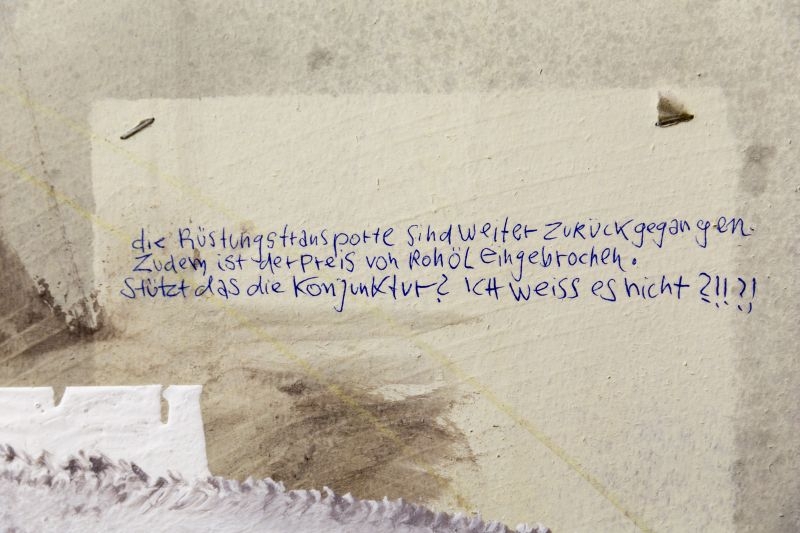 die Rüstungstransporte sind weiter zurückgegangen.
Zudem ist der Preis von Rohöl eingebrochen.
Stützt das die Konjunktur? ICH weiss es nicht ?!!?!